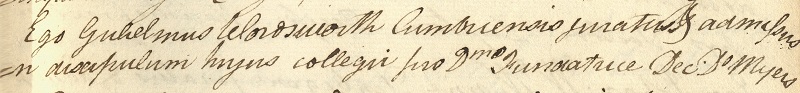 Ego Gulielmus Wordsworth Cumbriensis juratus & admissus
in discipulum hujus collegii pro Dmâ Fundatrice Dec: Do Myers